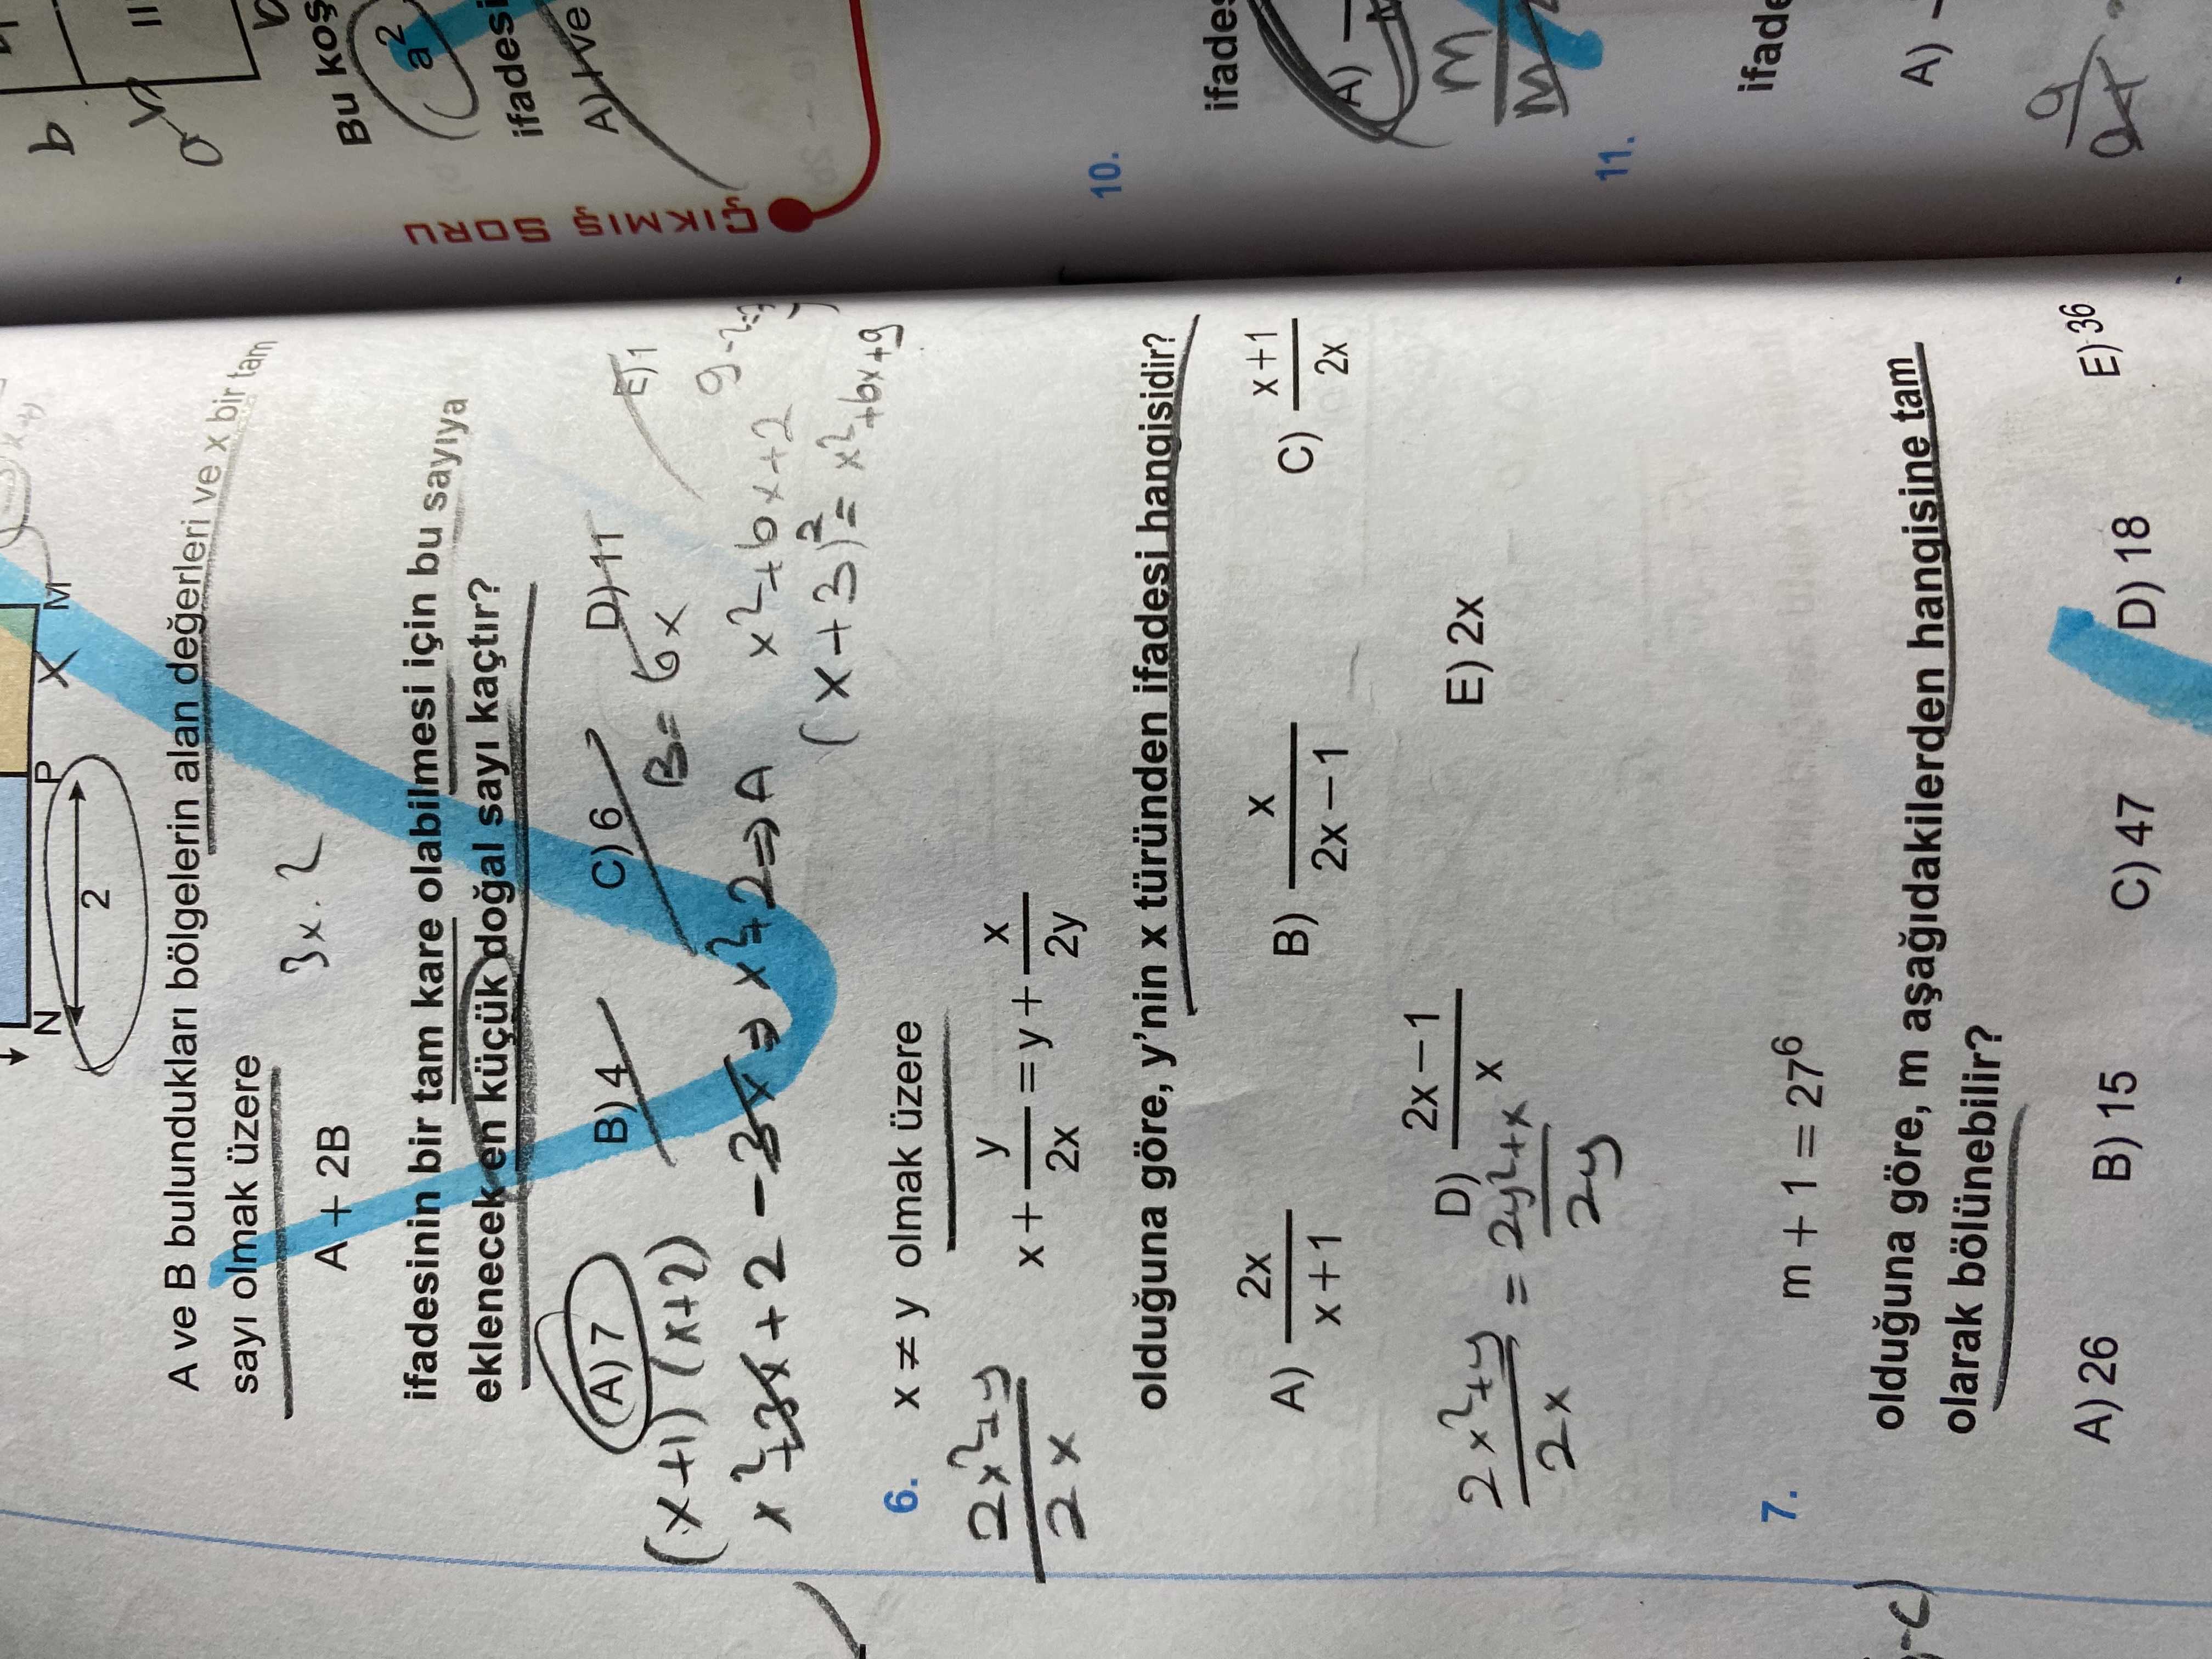 N
P
M
2
X
A ve B bulundukları bölgelerin alan değerleri ve x bir tam
sayı olmak üzere
3x.2
A + 2B
ifadesinin bir tam kare olabilmesi için bu sayıya
eklenecek en küçük doğal sayı kaçtır?
A) 7 B) 4 C) 6 D) 11 E) 1
(x+1) (x+2)
B= 6x
x²+3x+2 -3x ⇒ x²+2 ⇒ A
x²+6x+2
(x+3)² = x²+6x+9
6. x ≠ y olmak üzere
2x²+y
2x
x + y/2x = y + x/2y
olduğuna göre, y'nin x türünden ifadesi hangisidir?
A) 2x/x+1 B) x/2x−1 C) x+1/2x
D) 2x−1/x E) 2x
2x²+y/2x = 2y²+x/2y
7.
m + 1 = 27⁶
olduğuna göre, m aşağıdakilerden hangisine tam
olarak bölünebilir?
A) 26 B) 15 C) 47 D) 18 E) 36
b
Bu koş
a²
ifadesi
A) 1 ve
ÇIKMIŞ SORU
10.
ifades
A)
m
m
11.
ifade
A)